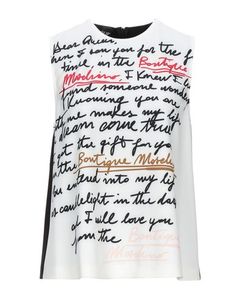 Dear
when I saw you for the f
time, in the Boutique
Moschino, I knew I
found someone wonder
Knowing you are
makes my lif
dream come true
got the gift for yo
the Boutique Mosch
into my lif
as candlelight in the dar
as I will love you
from the Boutique
Moschino